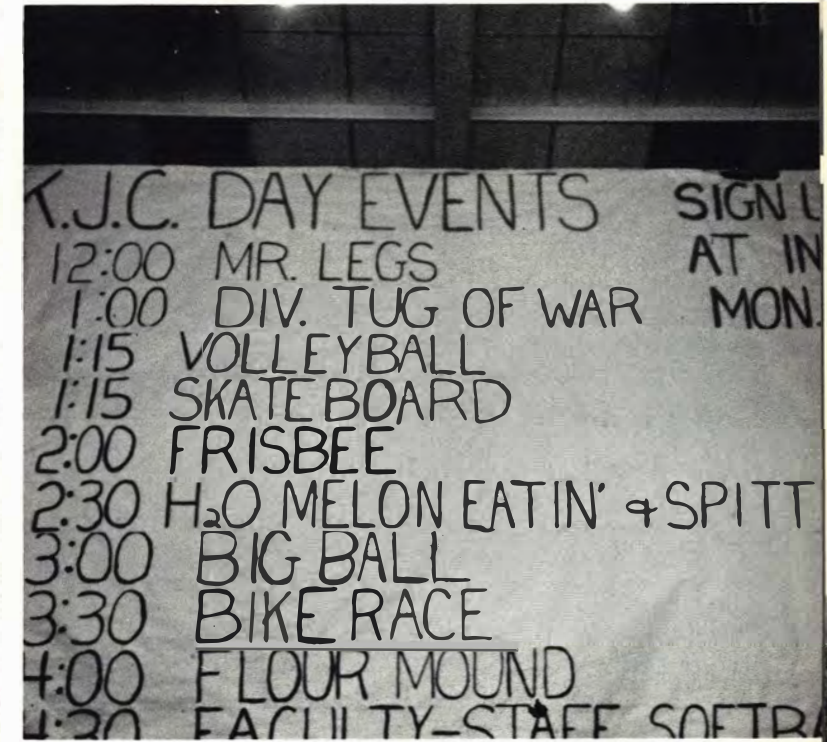 K.J.C. DAY EVENTS
12:00 MR. LEGS
1:00 DIV. TUG OF WAR
1:15 VOLLEYBALL
1:15 SKATEBOARD
2:00 FRISBEE
2:30 H₂O MELON EATIN' & SPITT
3:00 BIG BALL
3:30 BIKE RACE
4:00 FLOUR MOUND
4:30 FACULTY-STAFF SOFTBA
SIGN U
AT IN
MON.